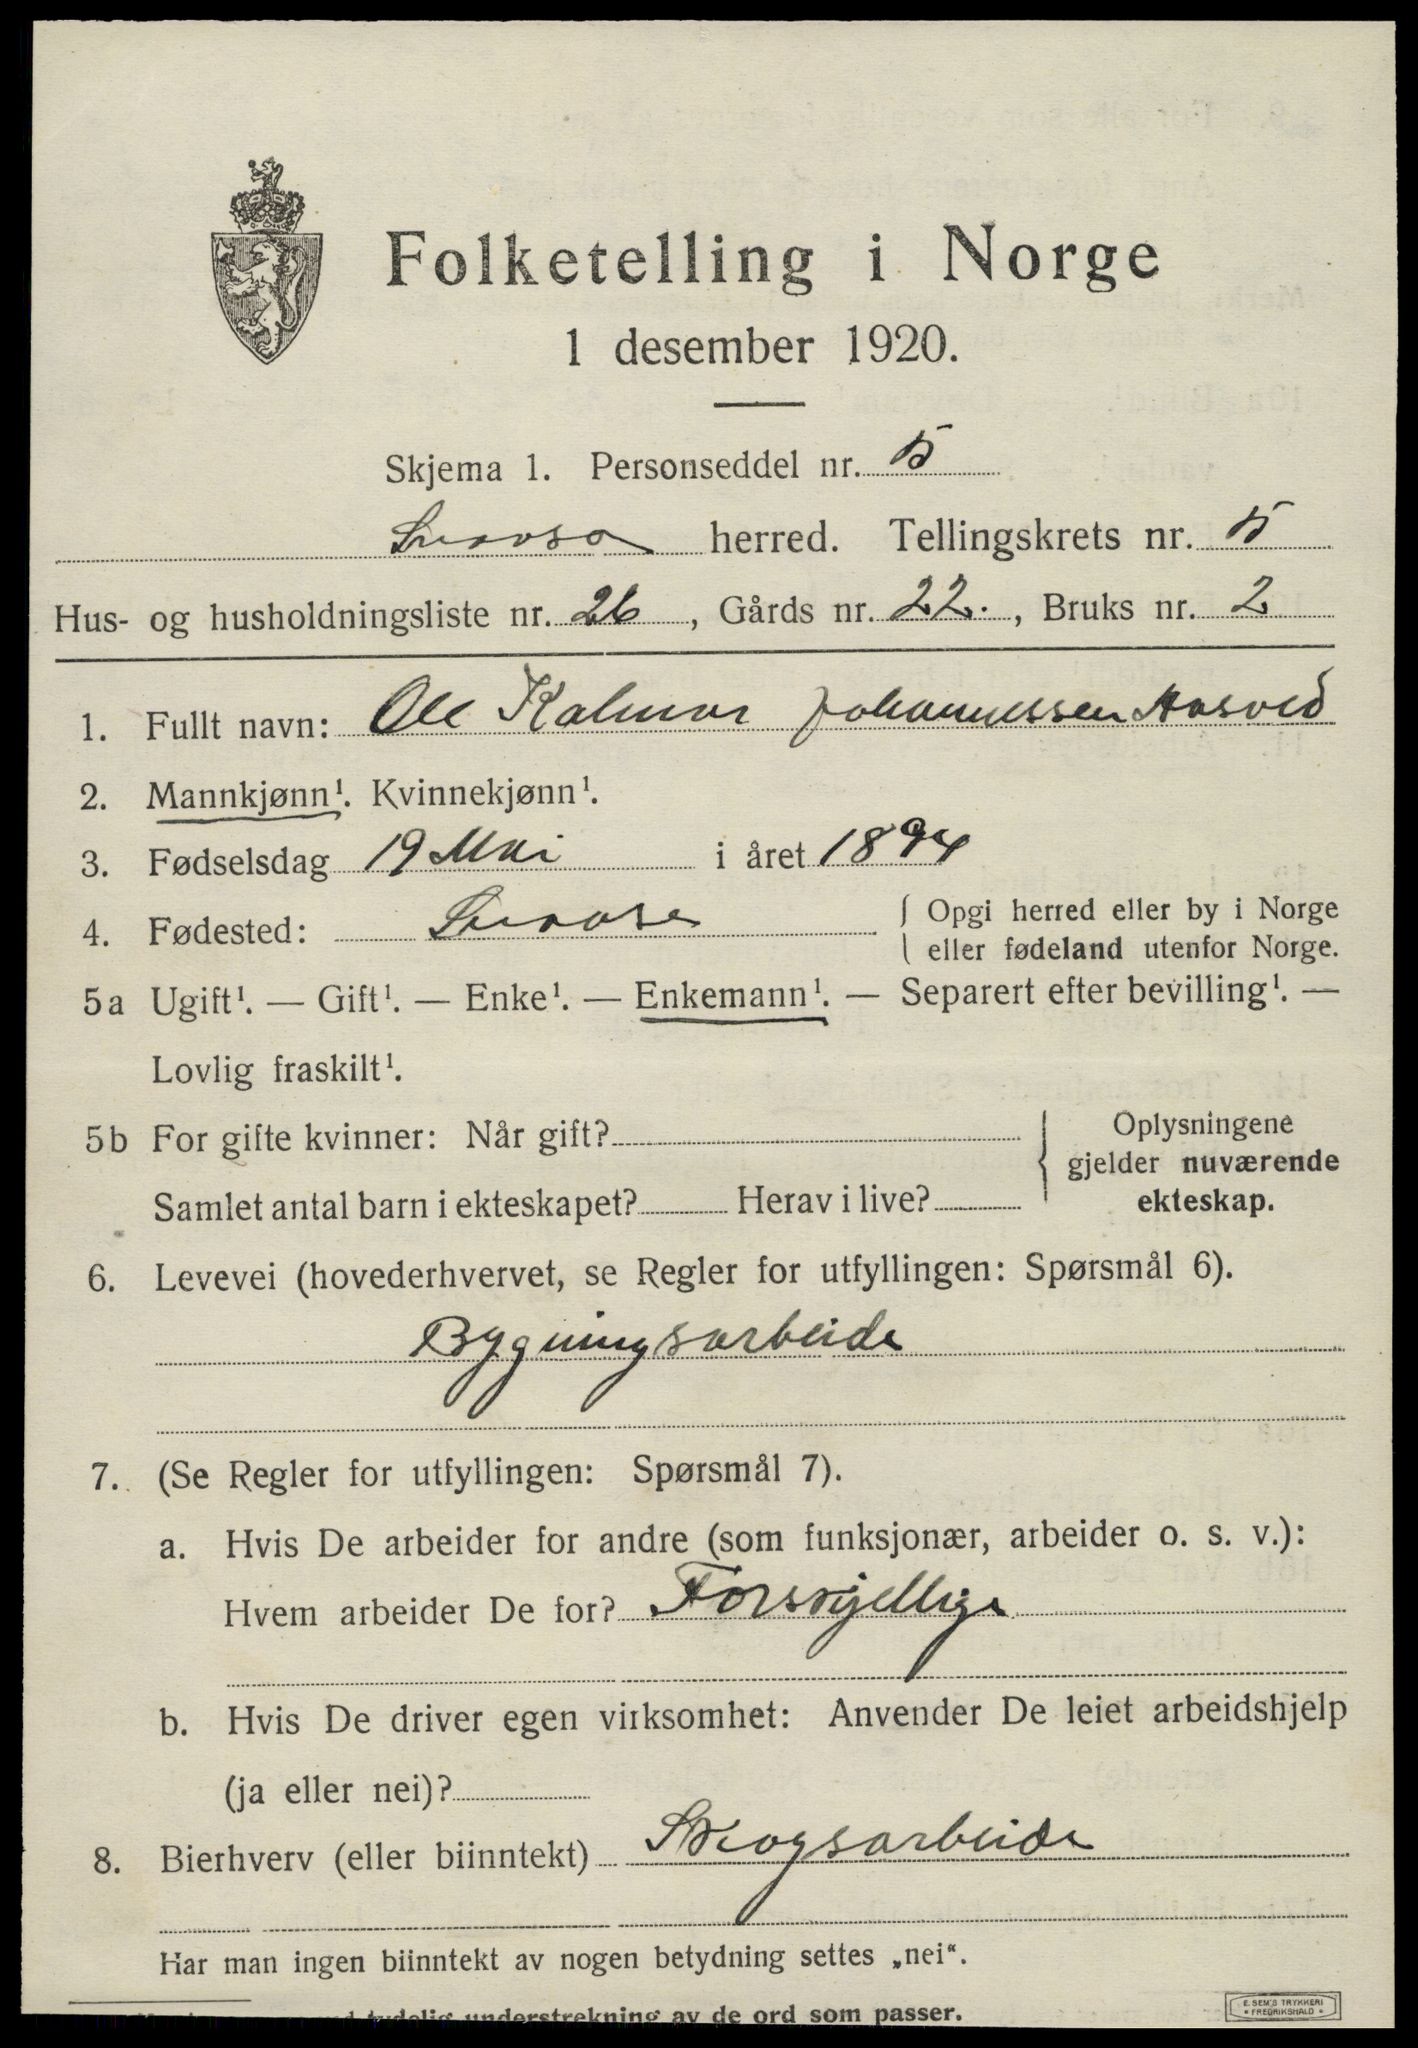 Folketelling i Norge
1 desember 1920.
Skjema 1. Personseddel nr. 5
Snaasa herred. Tellingskrets nr. 5
Hus- og husholdningsliste nr. 26, Gårds nr. 22., Bruks nr. 2
1. Fullt navn: Ole Kalmar Johannessen Aasved
2. Mannkjønn¹. Kvinnekjønn¹.
3. Fødselsdag 19 Mai i året 1894
4. Fødested: Snaase { Opgi herred eller by i Norge
eller fødeland utenfor Norge.
5a Ugift¹. — Gift¹. — Enke¹. — Enkemann¹. — Separert efter bevilling¹. —
Lovlig fraskilt¹.
5b For gifte kvinner: Når gift? { Oplysningene
gjelder nuværende
Samlet antal barn i ekteskapet? Herav i live? ekteskap.
6. Levevei (hovederhvervet, se Regler for utfyllingen: Spørsmål 6).
Bygningsarbeide
7. (Se Regler for utfyllingen: Spørsmål 7).
a. Hvis De arbeider for andre (som funksjonær, arbeider o. s. v.):
Hvem arbeider De for? Forskjellige
b. Hvis De driver egen virksomhet: Anvender De leiet arbeidshjelp
(ja eller nei)?
8. Bierhverv (eller biinntekt) Skogsarbeide
Har man ingen biinntekt av nogen betydning settes „nei“.
tydelig understrekning av de ord som passer.
E. SEM'S TRYKKERI
FREDRIKSHALD